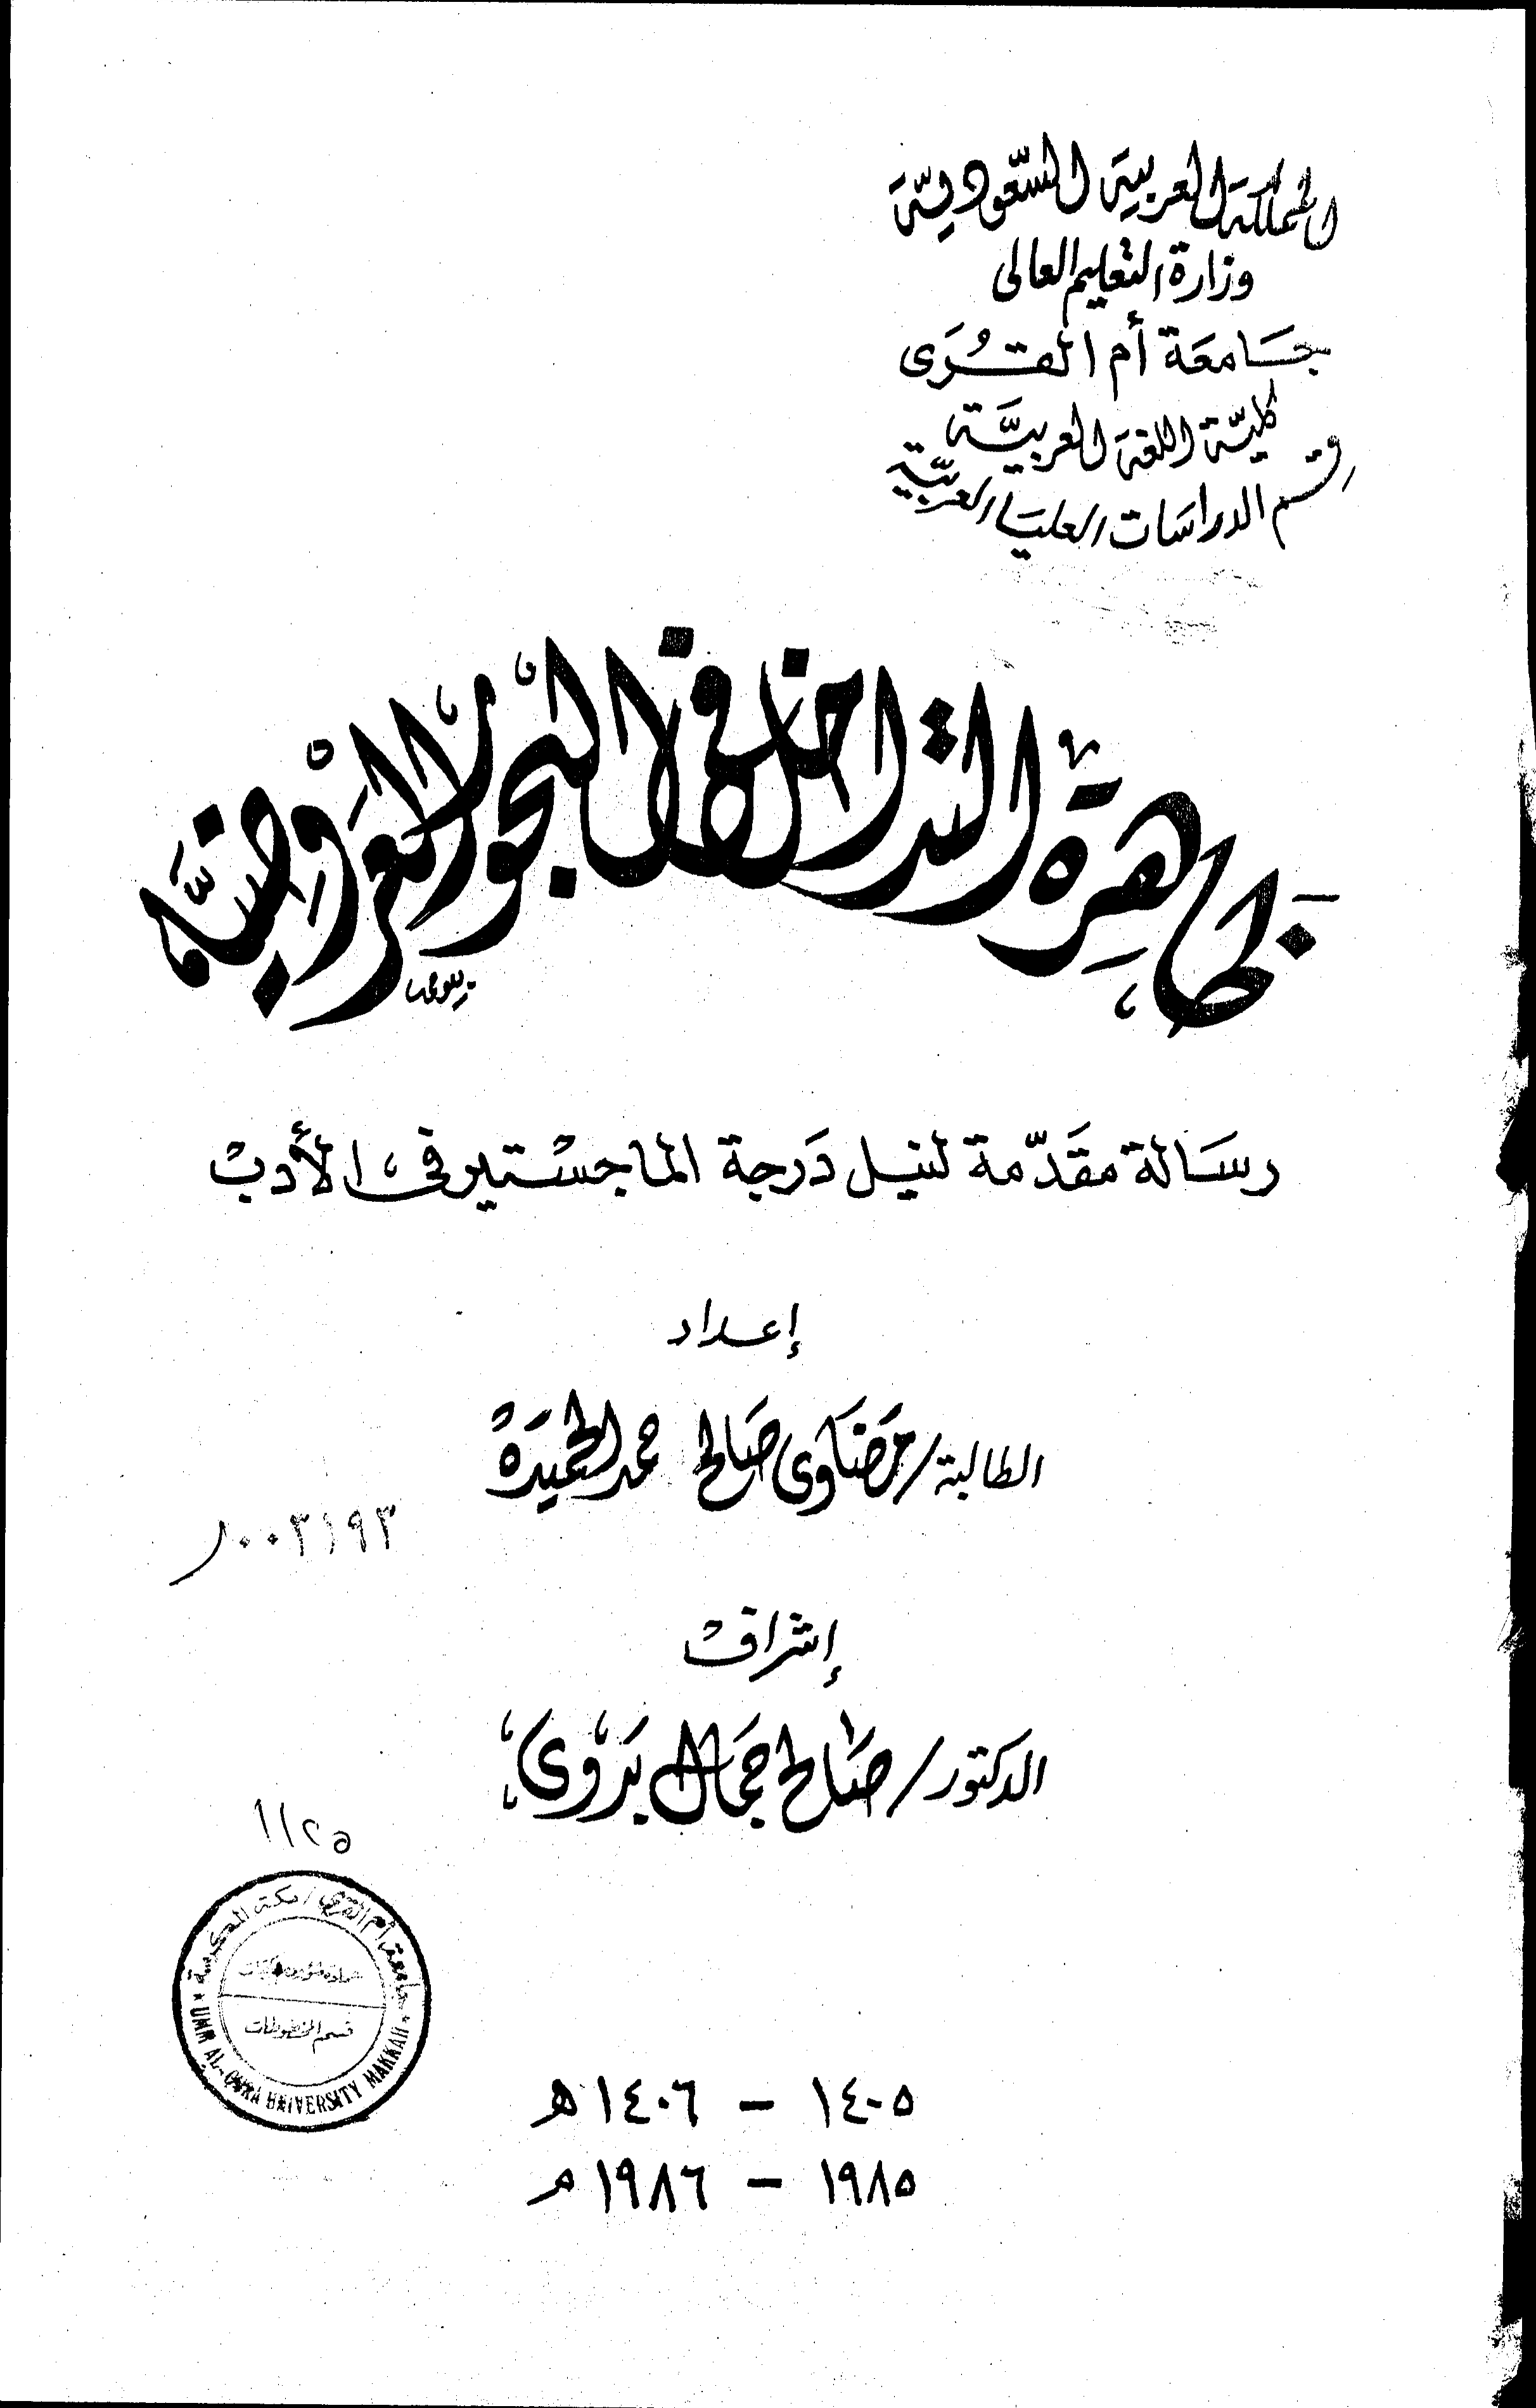 المملكة العربية السّعوديّة
وزارة التعليم العالى
جَامعَة أم القُرَى
كليّة اللغة العربيَّة
قسم الدراسَات العليَا العربيّة
ظاهِرة التداخل فى البحور العَروضيَّة
رسَالة مقَدّمة لنيل دَرجة الماجستير فى الأدب
إعداد
الطالبة/ مَضَاوى صَالح حمد الحميدَة
٨٠٠٣١٩٣
إشراف
الدكتور/ صَالح جمَال بَدَوى
١١٢٥
جامعة أم القرى / مكة المكرمة
قسم المخطوطات
UMM AL-QURA UNIVERSITY MAKKAH
١٤٠٥ - ١٤٠٦ هـ
١٩٨٥ - ١٩٨٦ م